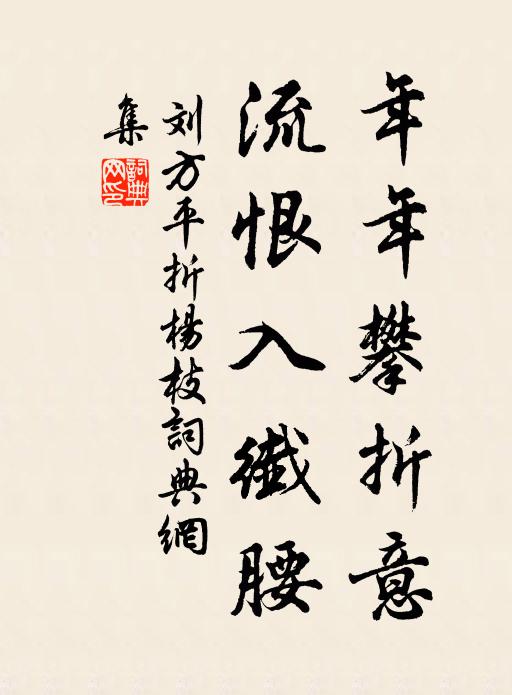 年年攀折意
流恨入纖腰
刘方平折楊枝詞典網
集
詞典網印